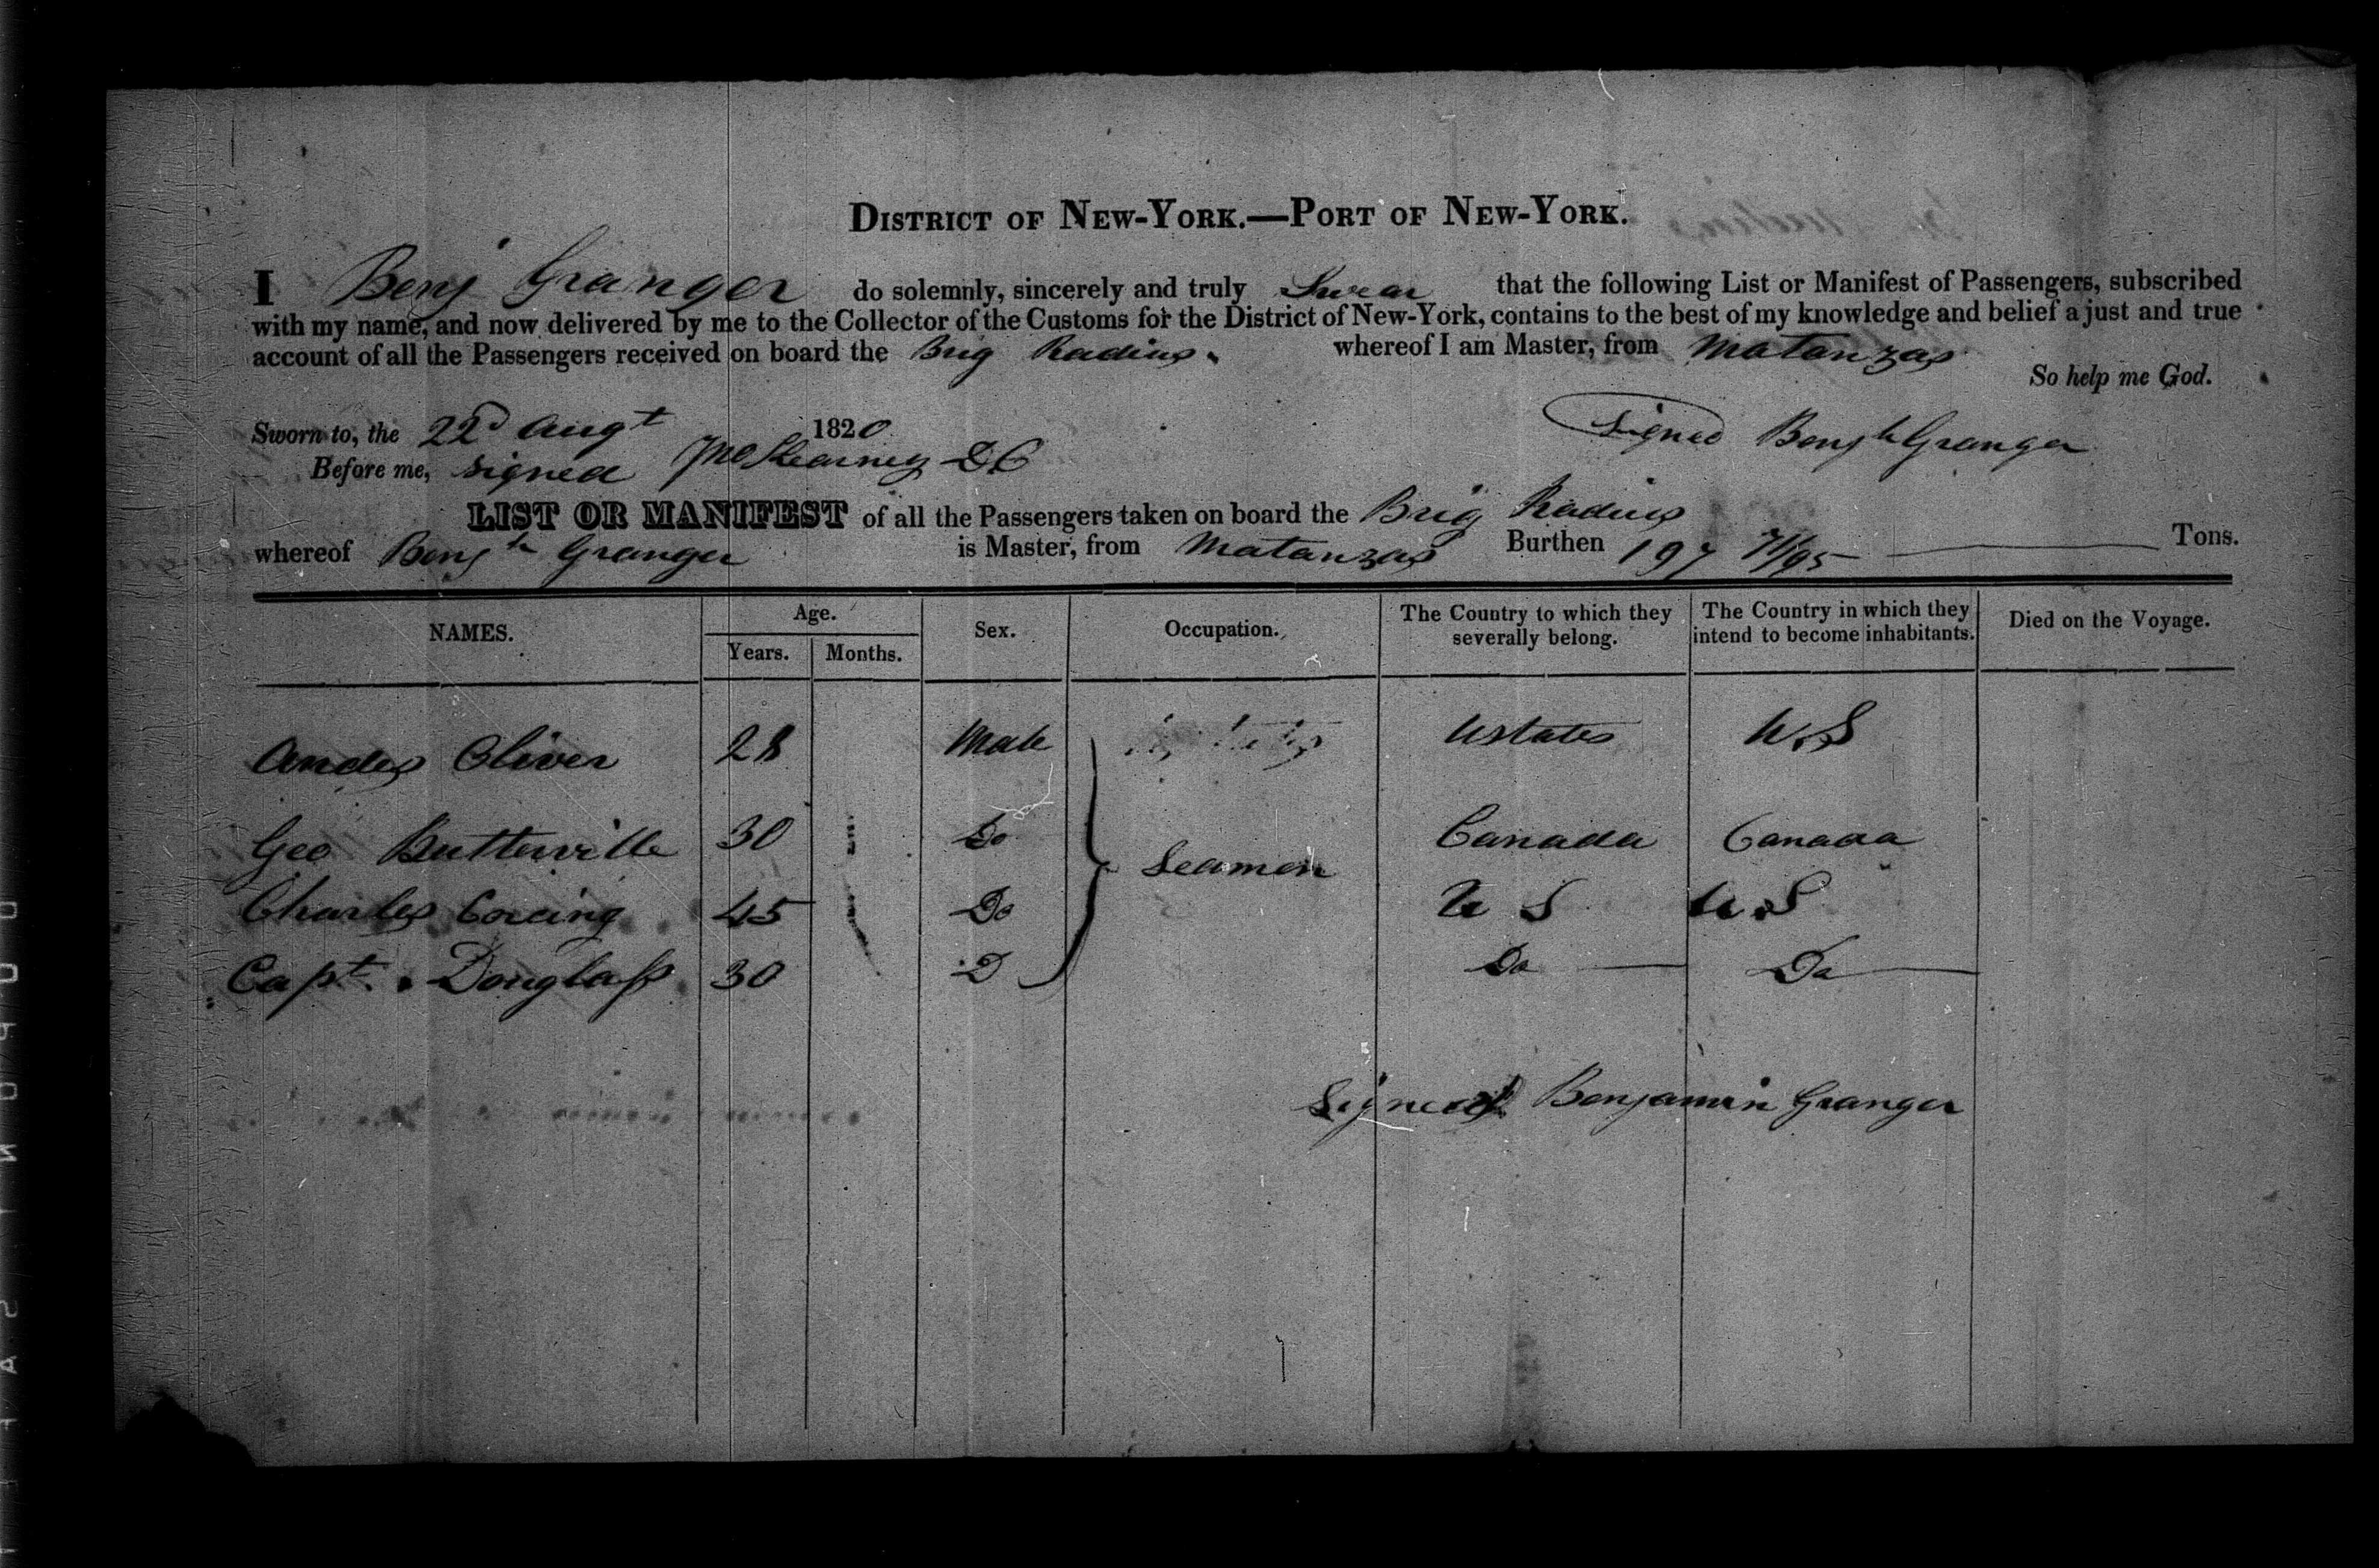 DISTRICT OF NEW-YORK.—PORT OF NEW-YORK.
I Benj Granger do solemnly, sincerely and truly Swear that the following List or Manifest of Passengers, subscribed
with my name, and now delivered by me to the Collector of the Customs for the District of New-York, contains to the best of my knowledge and belief a just and true
account of all the Passengers received on board the Brig Radius. whereof I am Master, from Matanzas
So help me God.
Sworn to, the 22d Augt 1820 Signed Benjn Granger
Before me, signed DC
LIST OR MANIFEST of all the Passengers taken on board the Brig Radius
whereof Benjn Granger is Master, from Matanzas Burthen 197 71/95 Tons.
NAMES. Age. Years. Months. Sex. Occupation. The Country to which they severally belong. The Country in which they intend to become inhabitants. Died on the Voyage.
Andes Oliver 28 Male Ustates U.S
Geo Butterville 30 Do Canada Canada
Seamen
Charles 45 Do U S U.S
Capt. Douglass 30 D Do Do
Signed Benjamin Granger